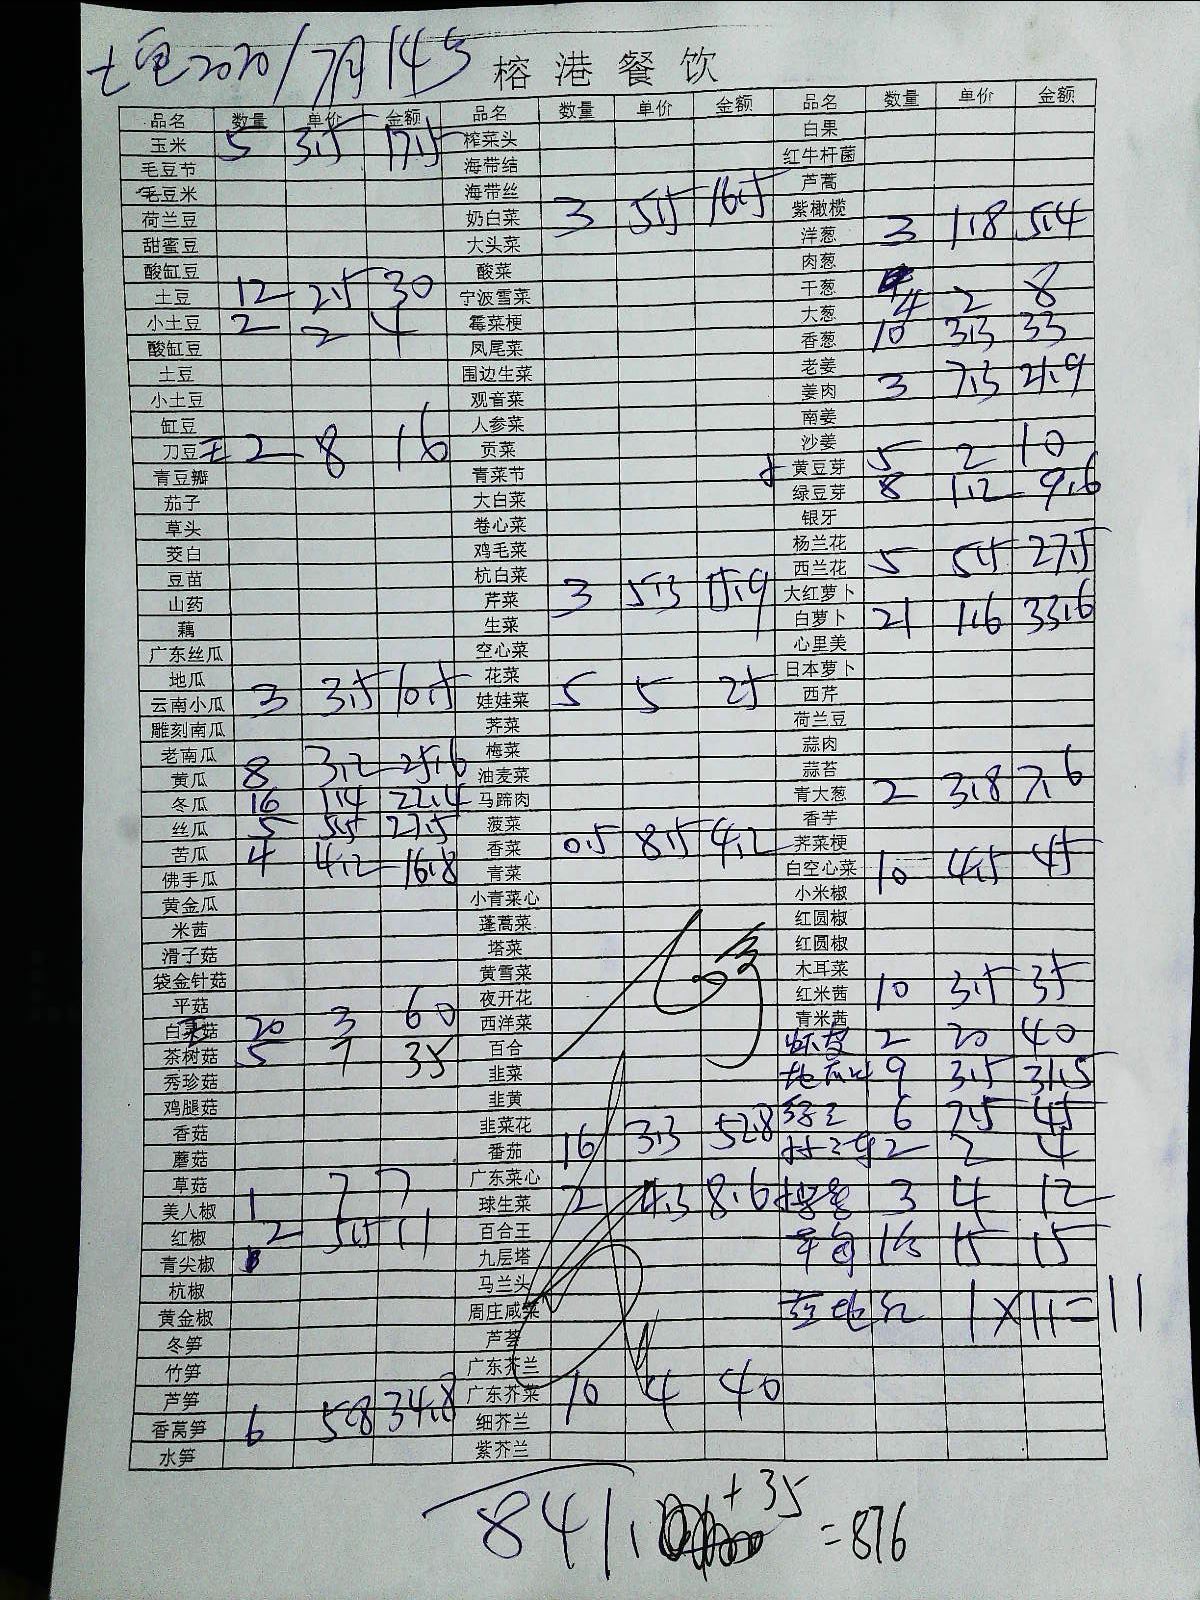 2020/7月14号
榕港餐饮
品名 数量 单价 金额 品名 数量 单价 金额 品名 数量 单价 金额
玉米 5 3.5 17.5 榨菜头 白果
毛豆节 海带结 红牛杆菌
毛豆米 海带丝 芦蒿
荷兰豆 奶白菜 3 5.5 16.5 紫橄榄
甜蜜豆 大头菜 洋葱 3 1.8 5.4
酸缸豆 酸菜 肉葱
土豆 12 2.5 30 宁波雪菜 干葱 4 2 8
小土豆 2 2 4 霉菜梗 大葱
酸缸豆 凤尾菜 香葱 10 3.3 33
土豆 围边生菜 老姜
小土豆 观音菜 姜肉 3 7.3 21.9
缸豆 人参菜 南姜
刀豆 2 8 16 贡菜 沙姜
青豆瓣 青菜节 黄豆芽 5 2 10
茄子 大白菜 绿豆芽 8 1.2 9.6
草头 卷心菜 银牙
茭白 鸡毛菜 杨兰花
豆苗 杭白菜 西兰花 5 5.5 27.5
山药 芹菜 3 5.3 15.9 大红萝卜
藕 生菜 白萝卜 21 1.6 33.6
广东丝瓜 空心菜 心里美
地瓜 花菜 日本萝卜
云南小瓜 3 3.5 10.5 娃娃菜 5 5 25 西芹
雕刻南瓜 荠菜 荷兰豆
老南瓜 梅菜 蒜肉
黄瓜 8 3.2 25.6 油麦菜 蒜苔
冬瓜 16 1.4 22.4 马蹄肉 青大葱 2 3.8 7.6
丝瓜 5 5.5 27.5 菠菜 香芋
苦瓜 4 4.2 16.8 香菜 0.5 8.5 4.2 荠菜梗
佛手瓜 青菜 白空心菜 10 4.5 45
黄金瓜 小青菜心 小米椒
米茜 蓬蒿菜 红圆椒
滑子菇 塔菜 红圆椒
袋金针菇 黄雪菜 木耳菜
平菇 夜开花 红米茜 10 3.5 35
白灵菇 20 3 60 西洋菜 青米茜
茶树菇 5 7 35 百合 2 20 40
秀珍菇 韭菜 9 3.5 31.5
鸡腿菇 韭黄
香菇 韭菜花 6 7.5 45
蘑菇 番茄 16 3.3 52.8 2 2 4
草菇 广东菜心
美人椒 1 7 7 球生菜 2 4.3 8.6 3 4 12
红椒 2 5.5 11 百合王
青尖椒 九层塔 15 15
杭椒 马兰头
黄金椒 周庄咸菜 1×11=11
冬笋 芦荟
竹笋 广东芥兰
芦笋 广东芥菜 10 4 40
香莴笋 6 5.8 34.8 细芥兰
水笋 紫芥兰
841. +35 =876